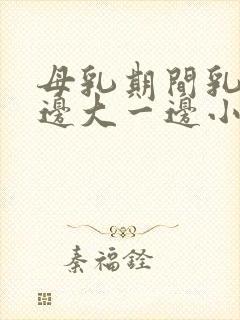 母乳期間乳
邊大一邊小
秦福銓